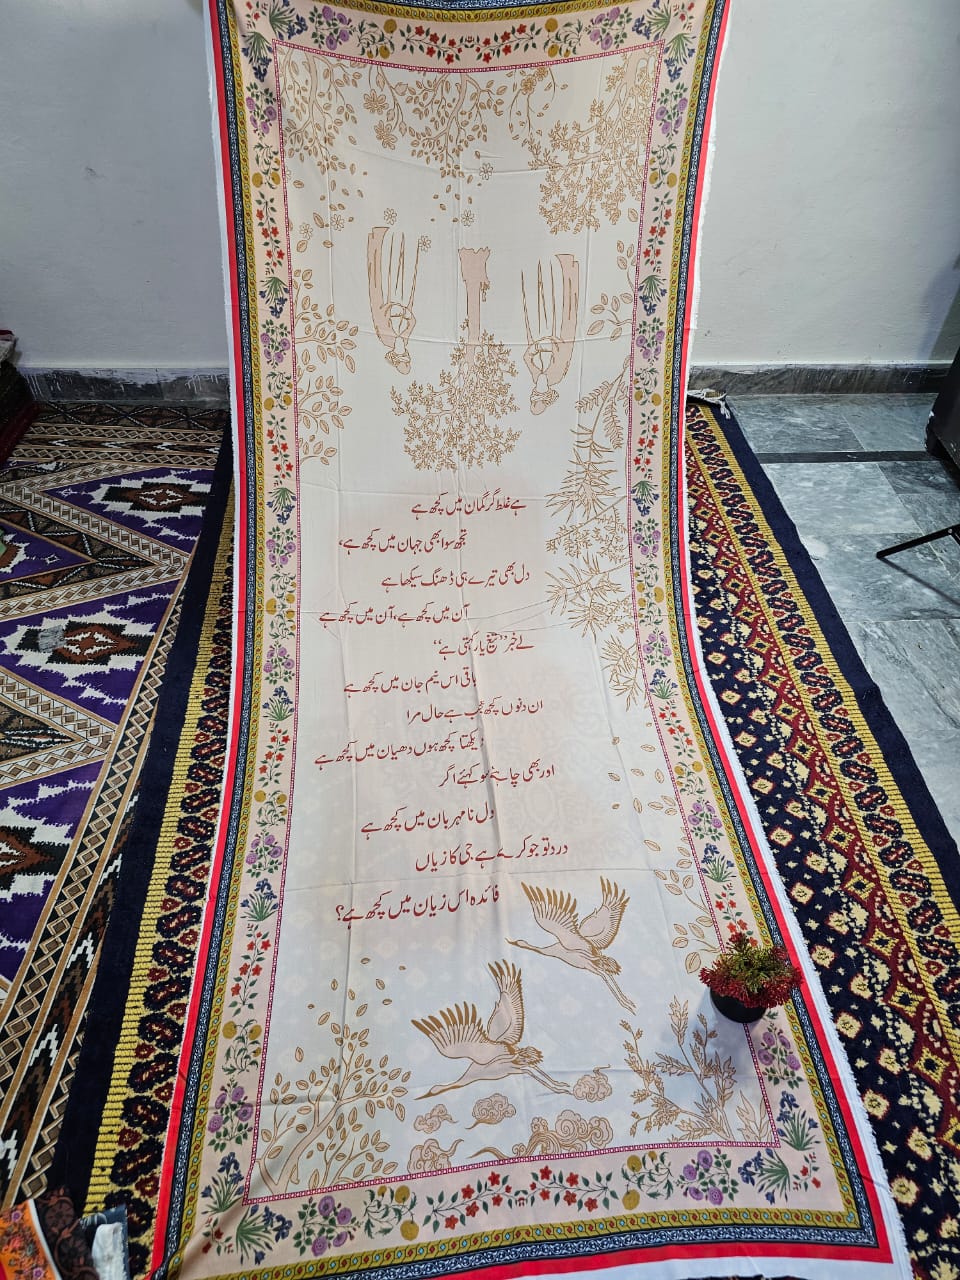 ہے غلط گر گمان میں کچھ ہے
تجھ سوا بھی جہان میں کچھ ہے،
دل بھی تیرے ہی ڈھنگ سیکھا ہے
آن میں کچھ ہے، آن میں کچھ ہے
بے خبر ”تیغ یار کہتی ہے“
باقی اس نیم جان میں کچھ ہے
ان دنوں کچھ عجب ہے حال مرا
دیکھتا کچھ ہوں دھیان میں کچھ ہے
اور بھی چاہئے سو کہئے اگر
دل نامہربان میں کچھ ہے
درد تو جو کرے ہے جی کا زیاں
فائدہ اس زیان میں کچھ ہے؟